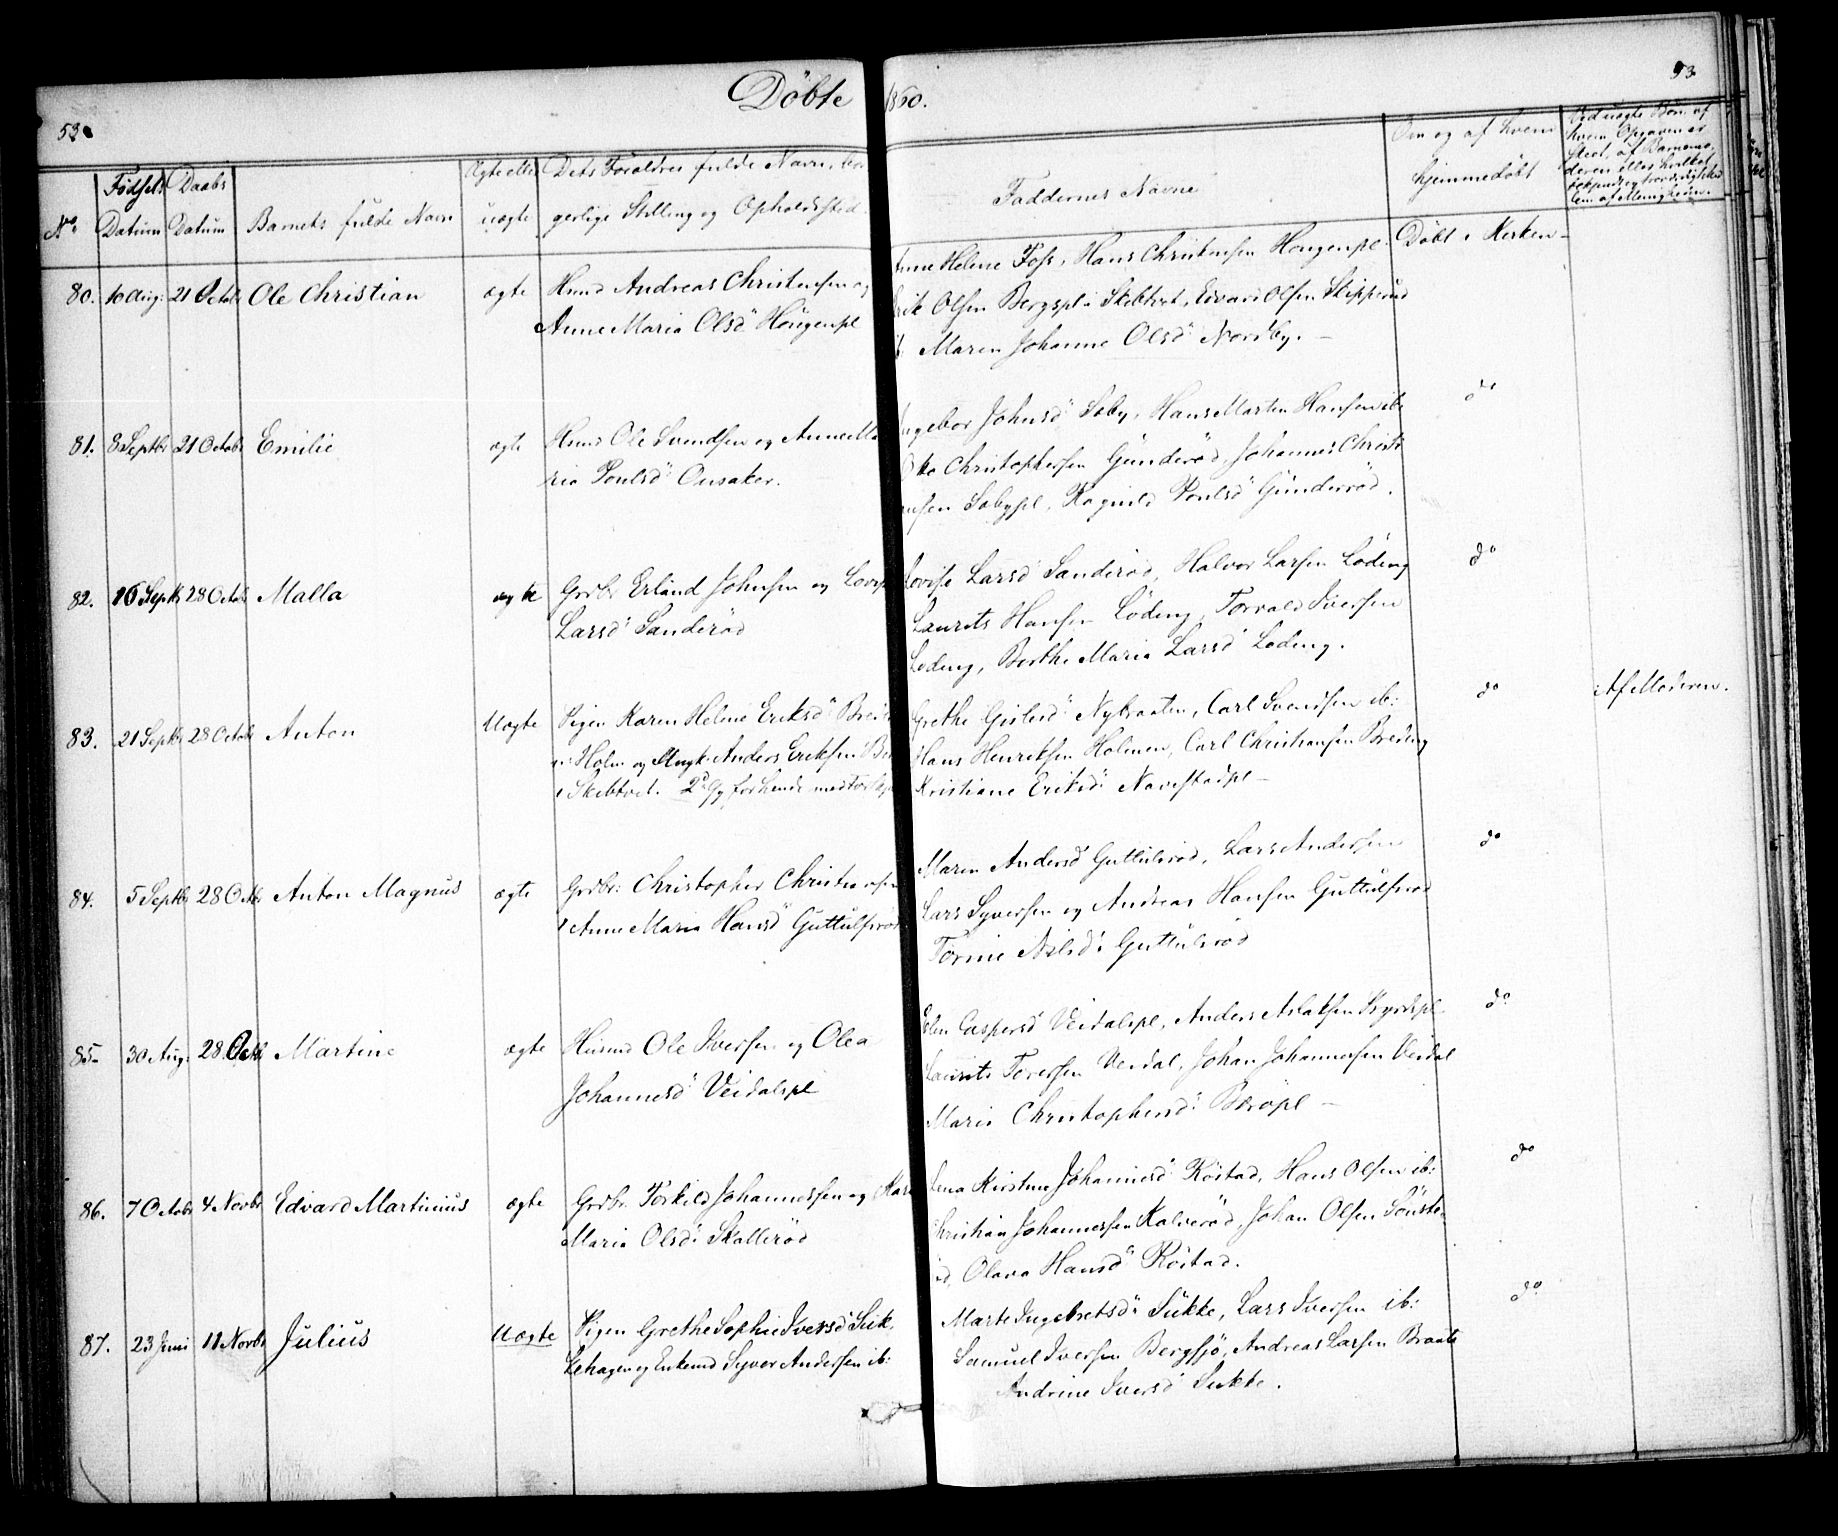 Döbte 1860.
53
53
No
Födsels Datum
Daabs Datum
Barnets fulde Navn
Ægte eller uægte
Dets Forældres fulde Navn, bor
gerlige Stilling og Opholdssted
Faddernes Navne
Om og af hvem
hjemmedöbt
Ved uægte Börn af
hvem Opgaven er
skeet, af Barnemo
deren eller hvilket
bekjendt og troværdigt
Lem af Menigheden.
80. 10 Aug: 21 Octob Ole Christian ægte Hmd Andreas Christensen og
Anne Maria Olsd: Hougenpl
Anne Helene Foss, Hans Christensen Hougenpl:
Erik Olsen Bergspl i Skibtvet, Edvard Olsen Skipperud
Maren Johanne Olsd: Nordby. –
Döbt i Kirken –
81. 8 Septbr 21 Octobr Emilie ægte Hmd Ole Svendsen og Anne Ma
ria Poulsd: Onsaker.
Ingebor Johnsd: Soby, Hans Martin Hansen ib:
Christophersen Gunderöd, Johannes Christi
ansen Sobypl, Ragnild Poulsd: Gunderöd.
do
82. 16 Septbr 28 Octobr Malla ægte Grdbr Erland Johnsen og Lovise
Larsd: Sanderöd
Lovise Larsd: Sanderöd, Halvor Larsen Löding
Laurits Hansen Löding, Torvald Iversen
Loding, Berthe Maria Larsd: Loding.
do
83. 21 Septbr 28 Octobr Anton Uægte Pigen Karen Helene Eriksd:
Holm og Ungk: Anders Eriksen
i Skibtvet. 2d Gg for hende
Grethe Nybraaten, Carl Svendsen ib:
Hans Henriksen Holmen, Carl Christiansen Breding
Kristiane Eriksd: Navestadpl –
do
Af Moderen.
84. 5 Septbr 28 Octbr Anton Magnus ægte Grdbr: Christopher Christiansen
Anne Maria Hansd: Guttulsröd
Maren Andersd: Guttulsröd, Lars Andersen
Lars Syversen og Andreas Hansen Guttulsröd
Torine Nilsd: Guttulsröd
do
85. 30 Aug: 28 Octb Martine ægte Husmd Ole Iversen og Olea
Johannesd: Veidalspl
Caspersd: Veidalspl, Anders Aslaksen
Laurits Toversen Veidal, Johan Johannessen Veidal
Maria Christophersd: Beröpl –
do
86. 7 Octobr 4 Novbr Edvard Martinius ægte Grdbr. Torkild Johannessen og Karen
Maria Olsd: Skalleröd
Lena Kirstine Johannesd: Röstad, Hans Olsen ib:
Christian Johannessen Kalveröd, Johan Olsen Sönste
Olava Hansd: Röstad.
do
87. 23 Juni 11 Novbr Julius Uægte Pigen Grethe Sophie Iversd: Suk
kehagen og Enkemd Syver Andersen ib:
Marte Ingebretsd: Sukke, Lars Iversen ib:
Samuel Iversen Bergsjö, Andreas Larsen Braate
Andrine Iversd: Sukke.
do